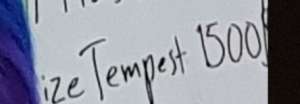 ize Tempest 1500